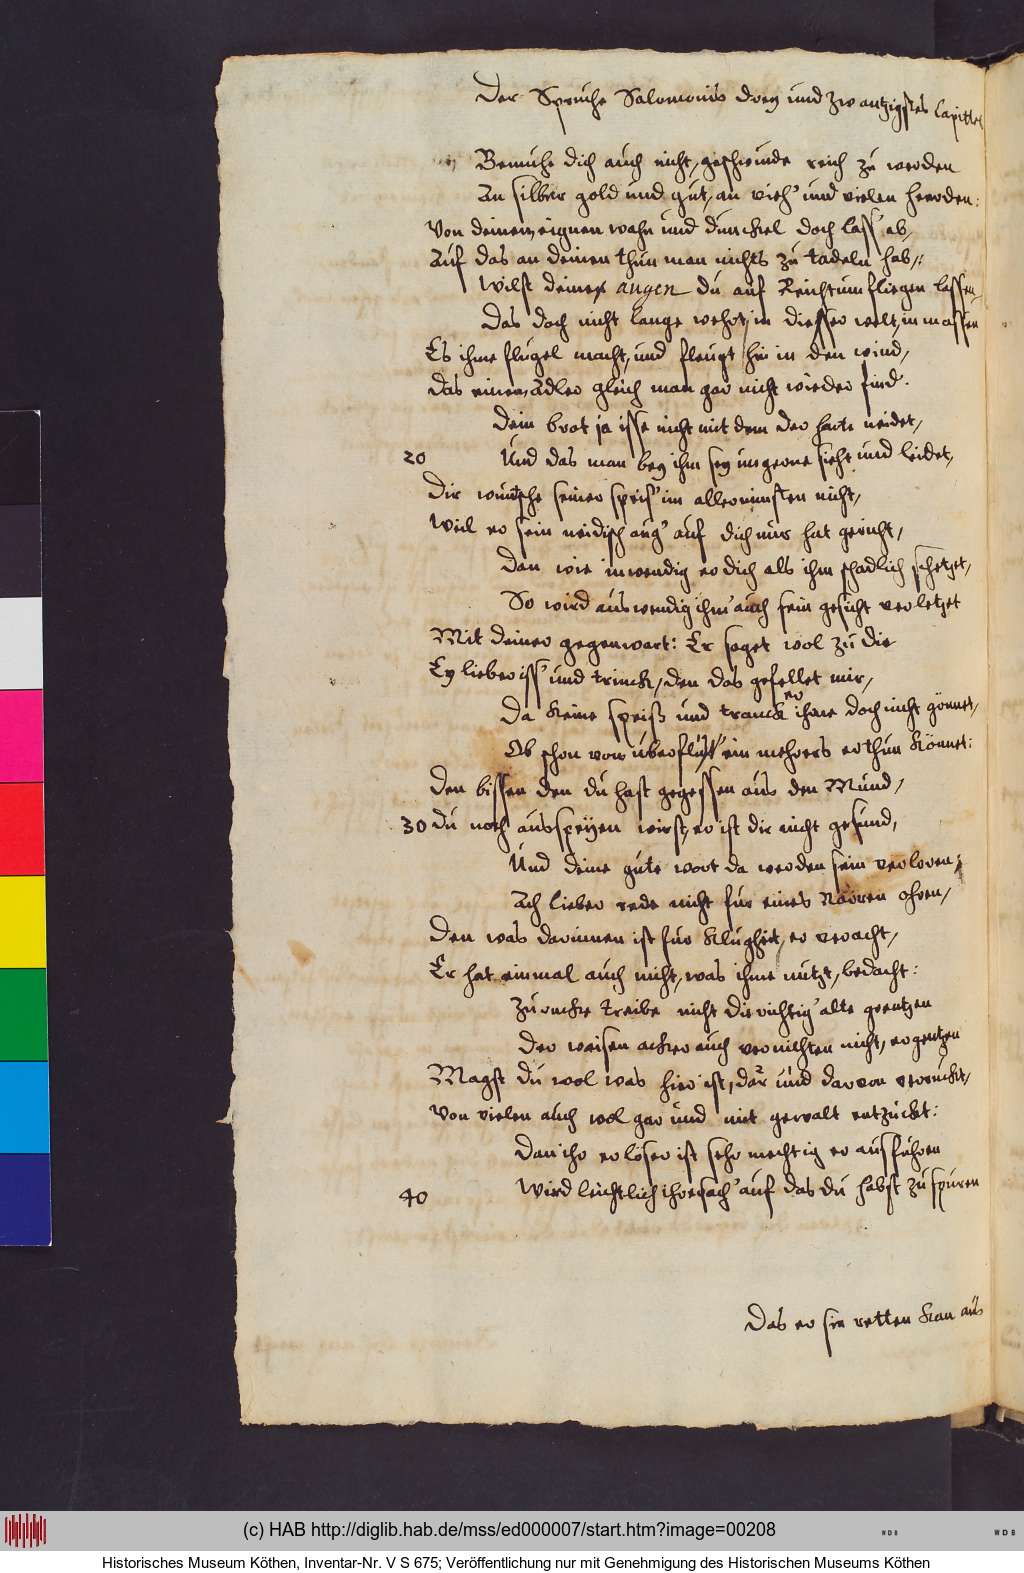 Der Spruche Salomonis drey und zwantzigstes Capittel
Bemuhe dich auch nicht, geschwinde reich zu werden
An silber gold und gut, an vieh' und vielen heerden:
Von deinem eignen wahn und dunckel doch lass' ab,
Auf das an deinem thun man nichts zu tadeln hab,:
Wilst deine augen du auf Reichtum fliegen lassen,
Das doch nicht lange wehrt, in dieser welt, in massen
Es ihme flugel macht, und fleugt hin in den wind,
Das einem Adler gleich man gar nicht wieder find.
Dein brot ja isse nicht mit dem der harte neidet,
20 Und das man bey ihm sey ungerne sieht und leidet,
Dir wuntsche seiner speis' im allerminsten nicht,
Weil er sein neidisch aug' auf dich nur hat gericht,
Dan wie inwendig er dich als ihm schadlich schetzet,
So wird auswendig ihm' auch sein gesicht verletzet
Mit deiner gegenwart: Er saget wol zu die
Ey lieber iss' und trinck, den das gefellet mir,
Da keine speiß und tranck er ihme doch nicht gönnet,
Ob schon von uberflus' ein mehrers er thun könnet:
Den bissen den du hast gegessen aus den Mund,
30 du noch ausspeyen wirst, er ist dir nicht gesund,
Und deine gute wort da werden sein verloren;
Ach lieber rede nicht fur eines Narren ohren,
Den was darinnen ist fur klugheit, er veracht,
Er hat einmal auch nicht, was ihme nutzt, bedacht:
Zurucke treibe nicht die richtig' alte grentzen
Der weisen acker auch vernichten nicht, ergentzen
Magst du wol was hier ist, dar und darvon verruckt,
Von vielen auch wol gar und mit gewalt entzuckt:
Dan ihr erlöser ist sehr mechtig er ausfuhren
40 Wird leichtlich ihre sach' auf das du habst zu spuren
Das er sie retten kan aus
(c) HAB http://diglib.hab.de/mss/ed000007/start.htm?image=00208
WDB
WDB
Historisches Museum Köthen, Inventar-Nr. V S 675; Veröffentlichung nur mit Genehmigung des Historischen Museums Köthen